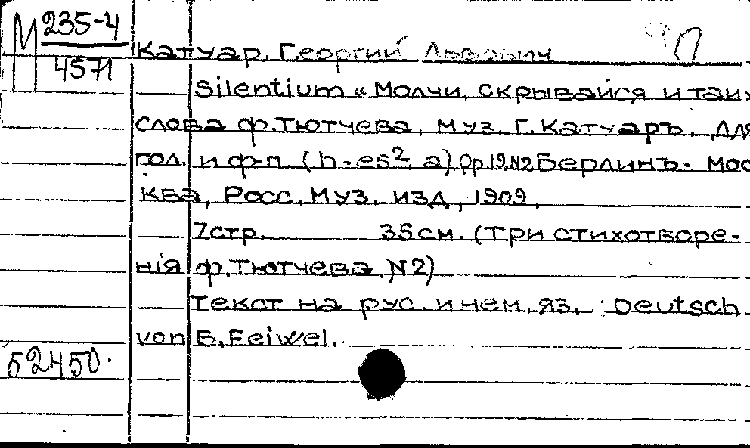 М 235-4
4571
Катуар, Георгий Львович
Silentium „Молчи, скрывайся и таи"
слова Ф. Тютчева, муз. Г. Катуаръ. Для
гол. и ф-п. (h-es², a) Op 19, N2 Берлинъ- Мос
ква, Росс. муз. изд, 1909.
7 стр. 35 см. (Три стихотворе-
нiя Ф. Тютчева, N2)
Текст на рус. и нем. яз. : Deutsch
von B. Feiwel.
52450.